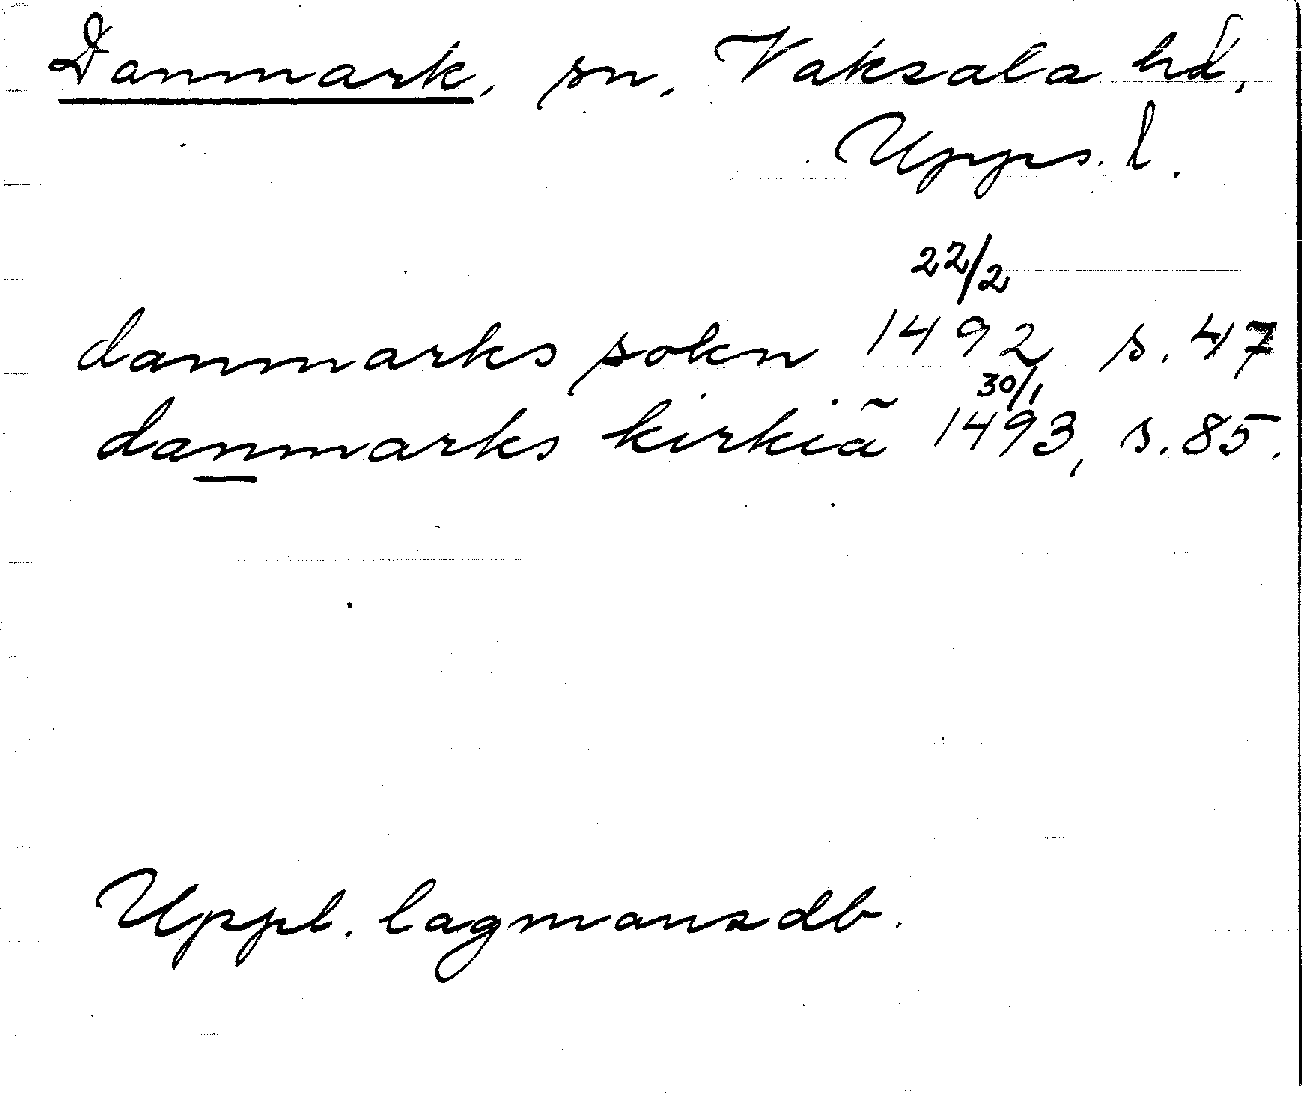 Danmark, sn, Vaksala hd,
Upps. l.
22/2
danmarks sokn 1492 s. 47
30/1
danmarks kirkiã 1493, s. 85.
Uppl. lagmansdb.